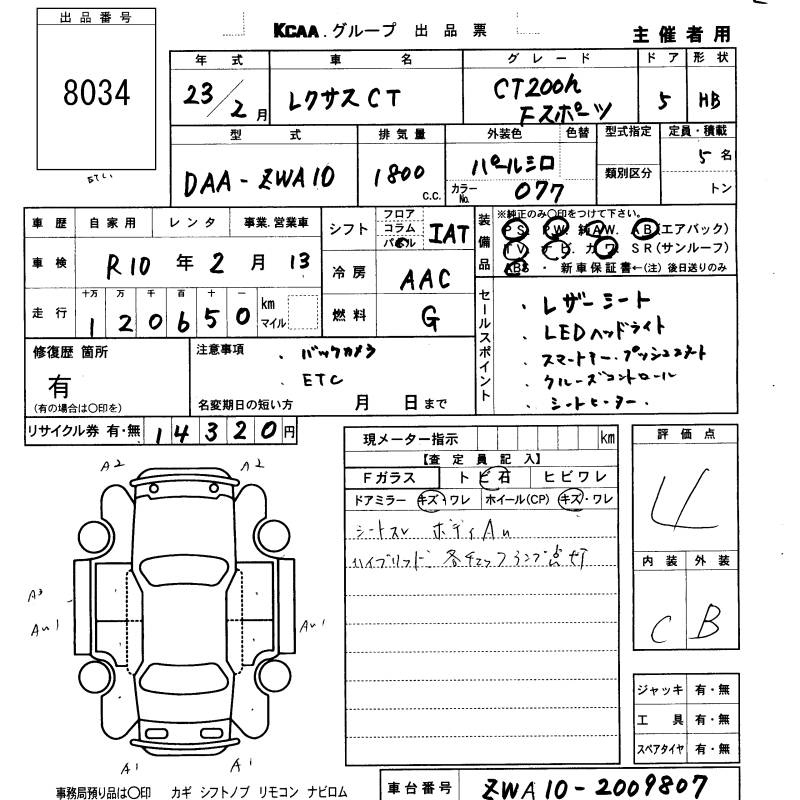 出品番号
8034
ETC
KCAA.グループ 出品票
主催者用
年式 車名 グレード ドア 形状
23/2月 レクサスCT CT200h Fスポーツ 5 HB
型式 排気量 外装色 色替 型式指定 定員・積載
DAA-ZWA10 1800 C.C. パールシロ 類別区分 5名
カラーNo. 077 トン
車歴 自家用 レンタ 事業.営業車
車検 R10年2月13
走行 十万 万 千 百 十 一
120650 km マイル
シフト フロア コラム パネル IAT
冷房 AAC
燃料 G
装備品
※純正のみ○印をつけて下さい。
PS. PW. 純AW. AB(エアバック)
TV. ナビ. カワ. SR(サンルーフ)
ABS・新車保証書←(注)後日送りのみ
セールスポイント
・レザーシート
・LEDヘッドライト
・スマートキー.プッシュスタート
・クルーズコントロール
・シートヒーター.
修復歴 箇所
有
(有の場合は○印を)
注意事項 ・バックカメラ
・ETC
名変期日の短い方 月 日まで
リサイクル券 有・無 14320円
現メーター指示 km
【査定員記入】
Fガラス トビ石 ヒビワレ
ドアミラー キズ・ワレ ホイール(CP) キズ・ワレ
シートスレ ボディAu
ハイブリッド.各チェックランプ点灯
評価点
4
内装 外装
C B
ジャッキ 有・無
工具 有・無
スペアタイヤ 有・無
A2 A2
A3
Au1 Au1
A1 A1
事務局預り品は○印 カギ シフトノブ リモコン ナビロム
車台番号 ZWA10-2009807